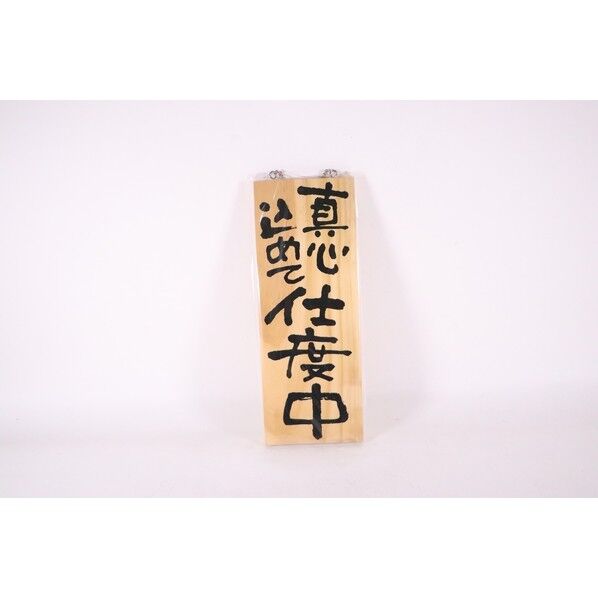 真心
込めて
仕度中